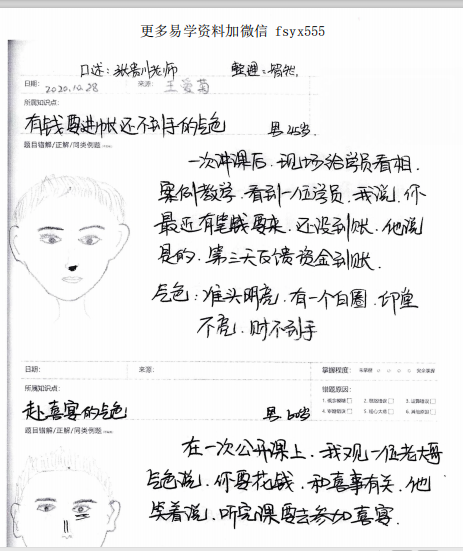 更多易学资料加微信 fsyx555
口述：张贵川老师 整理：智龙.
日期： 2020.10.28 来源： 王爱菊
所属知识点：
有钱要进帐还不到手的气色 男45岁.
题目错解/正解/同类例题
一次讲课后.现场给学员看相.
案例教学.看到一位学员.我说.你
最近有笔钱要来.还没到账.他说
是的.第三天反馈资金到账.
气色：准头明亮.有一个白圈.印堂
不亮.财不到手
日期： 来源： 掌握程度： 未掌握 完全掌握
所属知识点： 错题原因：
赴喜宴的气色 男.60岁
题目错解/正解/同类例题
在一次公开课上.我观一位老大哥
气色说.你要花钱.和喜事有关.他
笑着说.听完课要去参加喜宴.